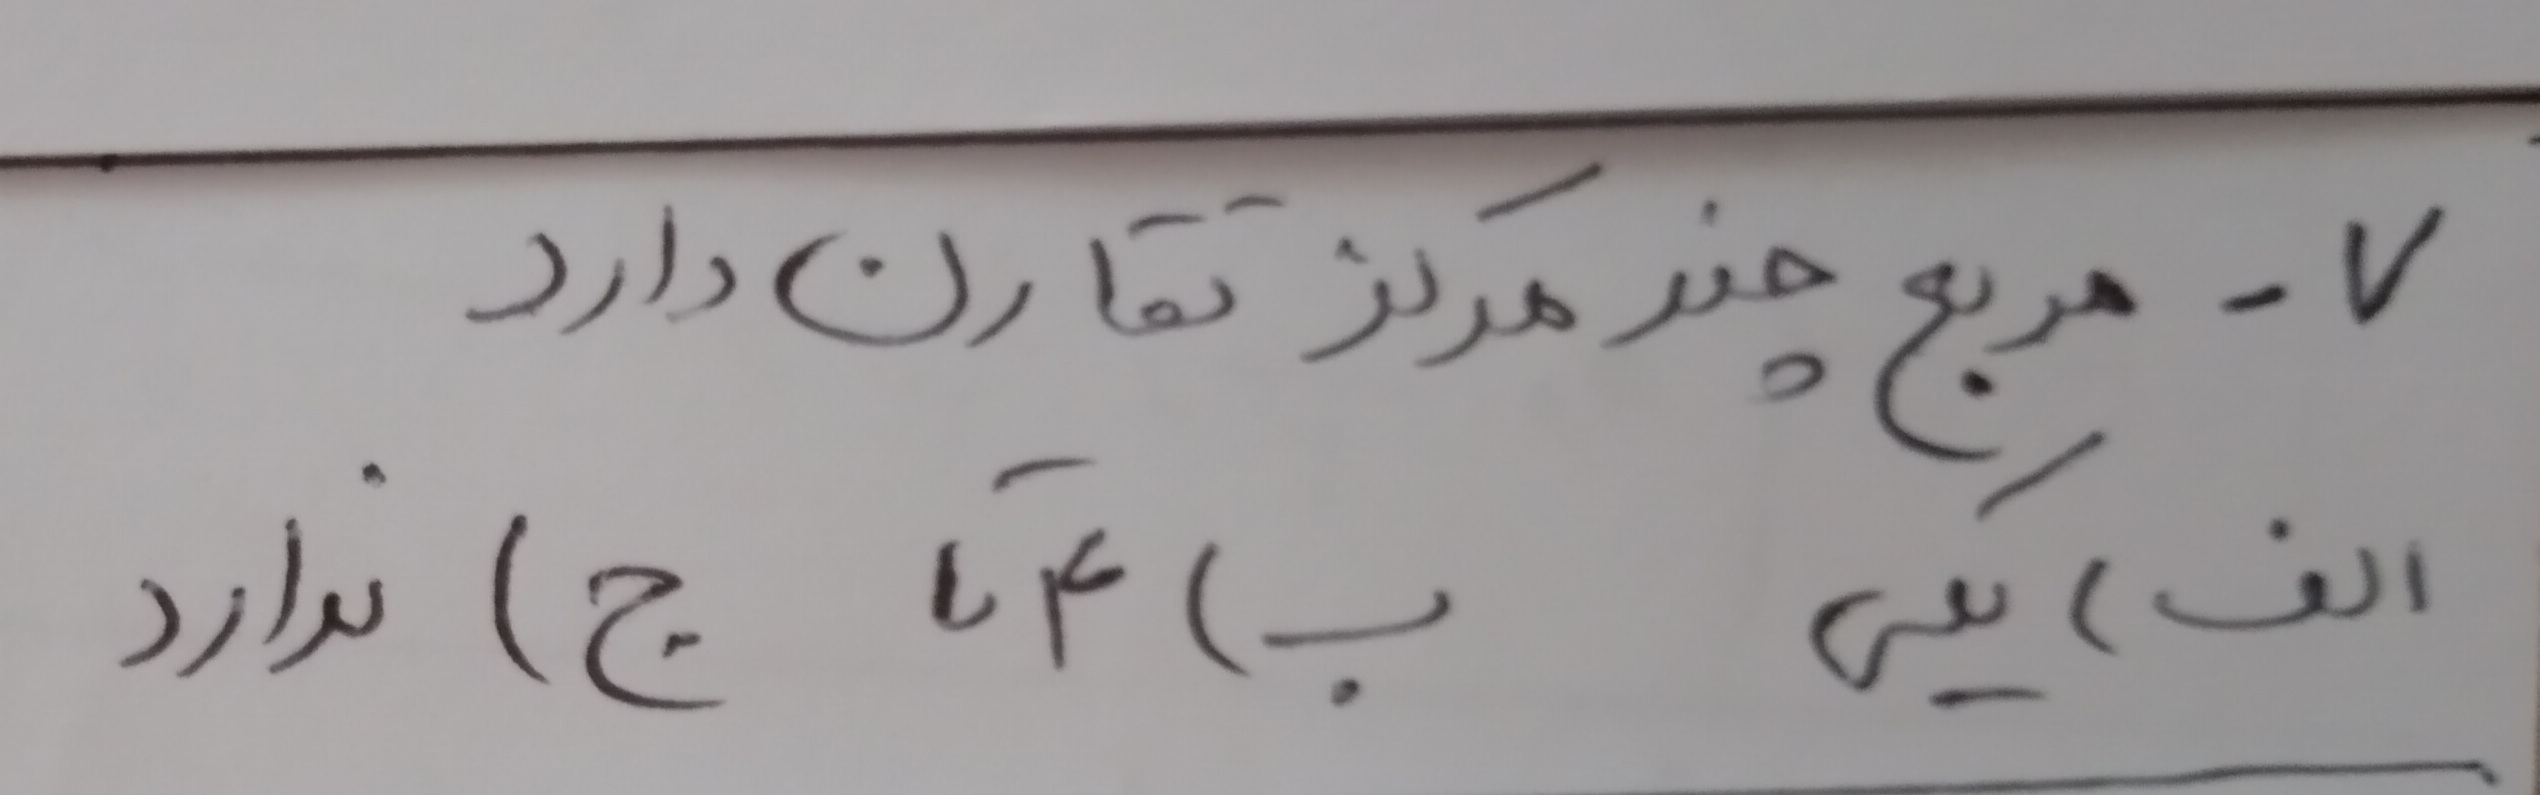 ۷- مربع چند مرکز تقارن دارد
الف) یکی ب) ۴ تا ج) ندارد